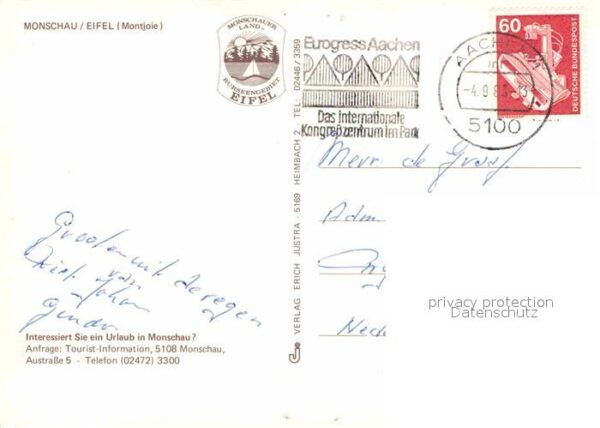 MONSCHAU / EIFEL (Montjoie)
MONSCHAUER
LAND
RURSEENGEBIET
EIFEL
Eurogress Aachen
Das internationale
Kongreßzentrum im Park
AACHEN
-4.9.8
5100
60
DEUTSCHE BUNDESPOST
VERLAG ERICH JUSTRA · 5169 HEIMBACH 2 · TEL: 02446/3359
Mevr. de Graaf
Adm
Ned
Groeten uit de regen
van
privacy protection
Datenschutz
Interessiert Sie ein Urlaub in Monschau?
Anfrage: Tourist-Information, 5108 Monschau,
Austraße 5 - Telefon (02472) 3300